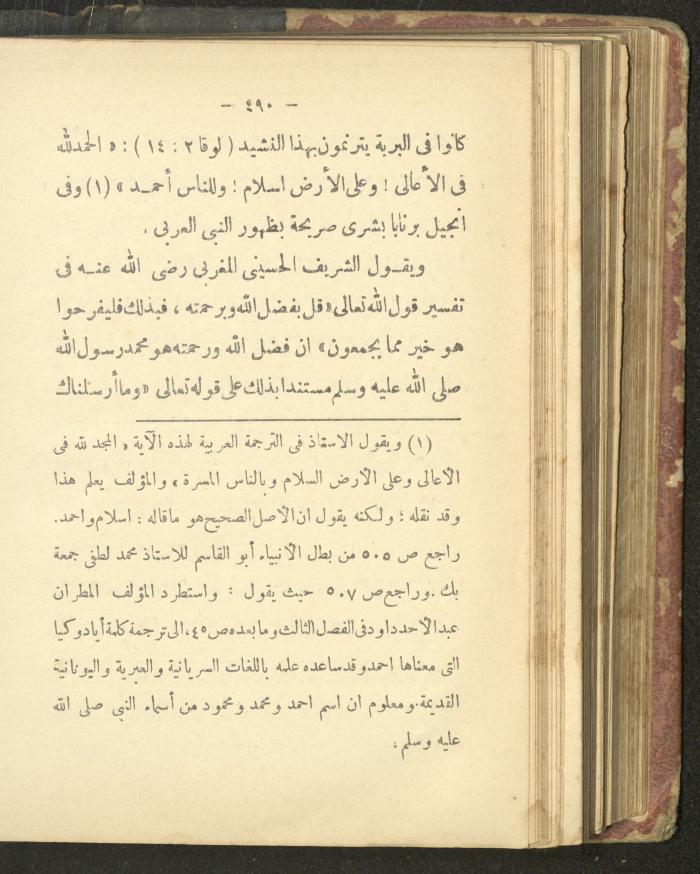 — ٤٩٠ —
كانوا فى البرية يترنمون بهذا النشيد ( لوقا ٢ : ١٤ ) : « الحمد لله
فى الأعالى ! وعلى الأرض اسلام ! وللناس أحمـد » (١) وفى
انجيل برنابا بشرى صريحة بظهور النبى العربى .
ويقـول الشريف الحسينى المغربى رضى الله عنـه فى
تفسير قول الله تعالى « قل بفضل الله وبرحمته ، فبذلك فليفرحوا
هو خير مما يجمعون » ان فضل الله ورحمته هو محمد رسول الله
صلى الله عليه وسلم مستندا بذلك على قوله تعالى « وما أرسلناك
(١) ويقول الاستاذ فى الترجمة العربية لهذه الآية « المجد لله فى
الاعالى وعلى الارض السلام وبالناس المسرة » والمؤلف يعلم هذا
وقد نقله ؛ ولكنه يقول ان الاصل الصحيح هو ما قاله : اسلام واحمد .
راجع ص ٥٠٥ من بطل الانبياء أبو القاسم للاستاذ محمد لطفى جمعة
بك . وراجع ص ٥٠٧ حيث يقول : واستطرد المؤلف المطران
عبد الاحد داود فى الفصل الثالث وما بعده ص ٤٥ ، الى ترجمة كلمة أيادوكيا
التى معناها احمد وقد ساعده علمه باللغات السريانية والعبرية واليونانية
القديمة . ومعلوم ان اسم احمد ومحمد ومحمود من أسماء النبى صلى الله
عليه وسلم :